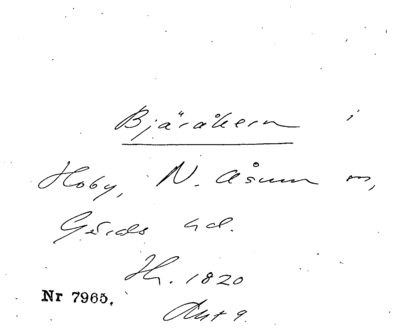 Bjäråkern i
Hoby, N. Åsum sn,
Gärds hd.
Hr. 1820
Nr 7965.
Akt 9.